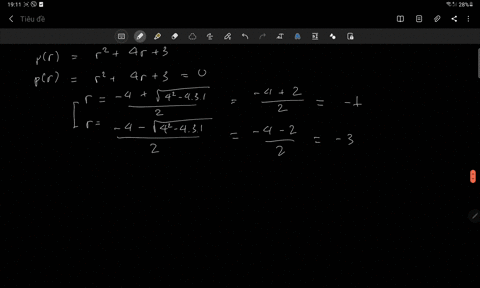 19:11
28%
Tiêu đề
p(r) = r² + 4r + 3
p(r) = r² + 4r + 3 = 0
r = (-4 + √(4² - 4.3.1))/2 = (-4 + 2)/2 = -1
r = (-4 - √(4² - 4.3.1))/2 = (-4 - 2)/2 = -3